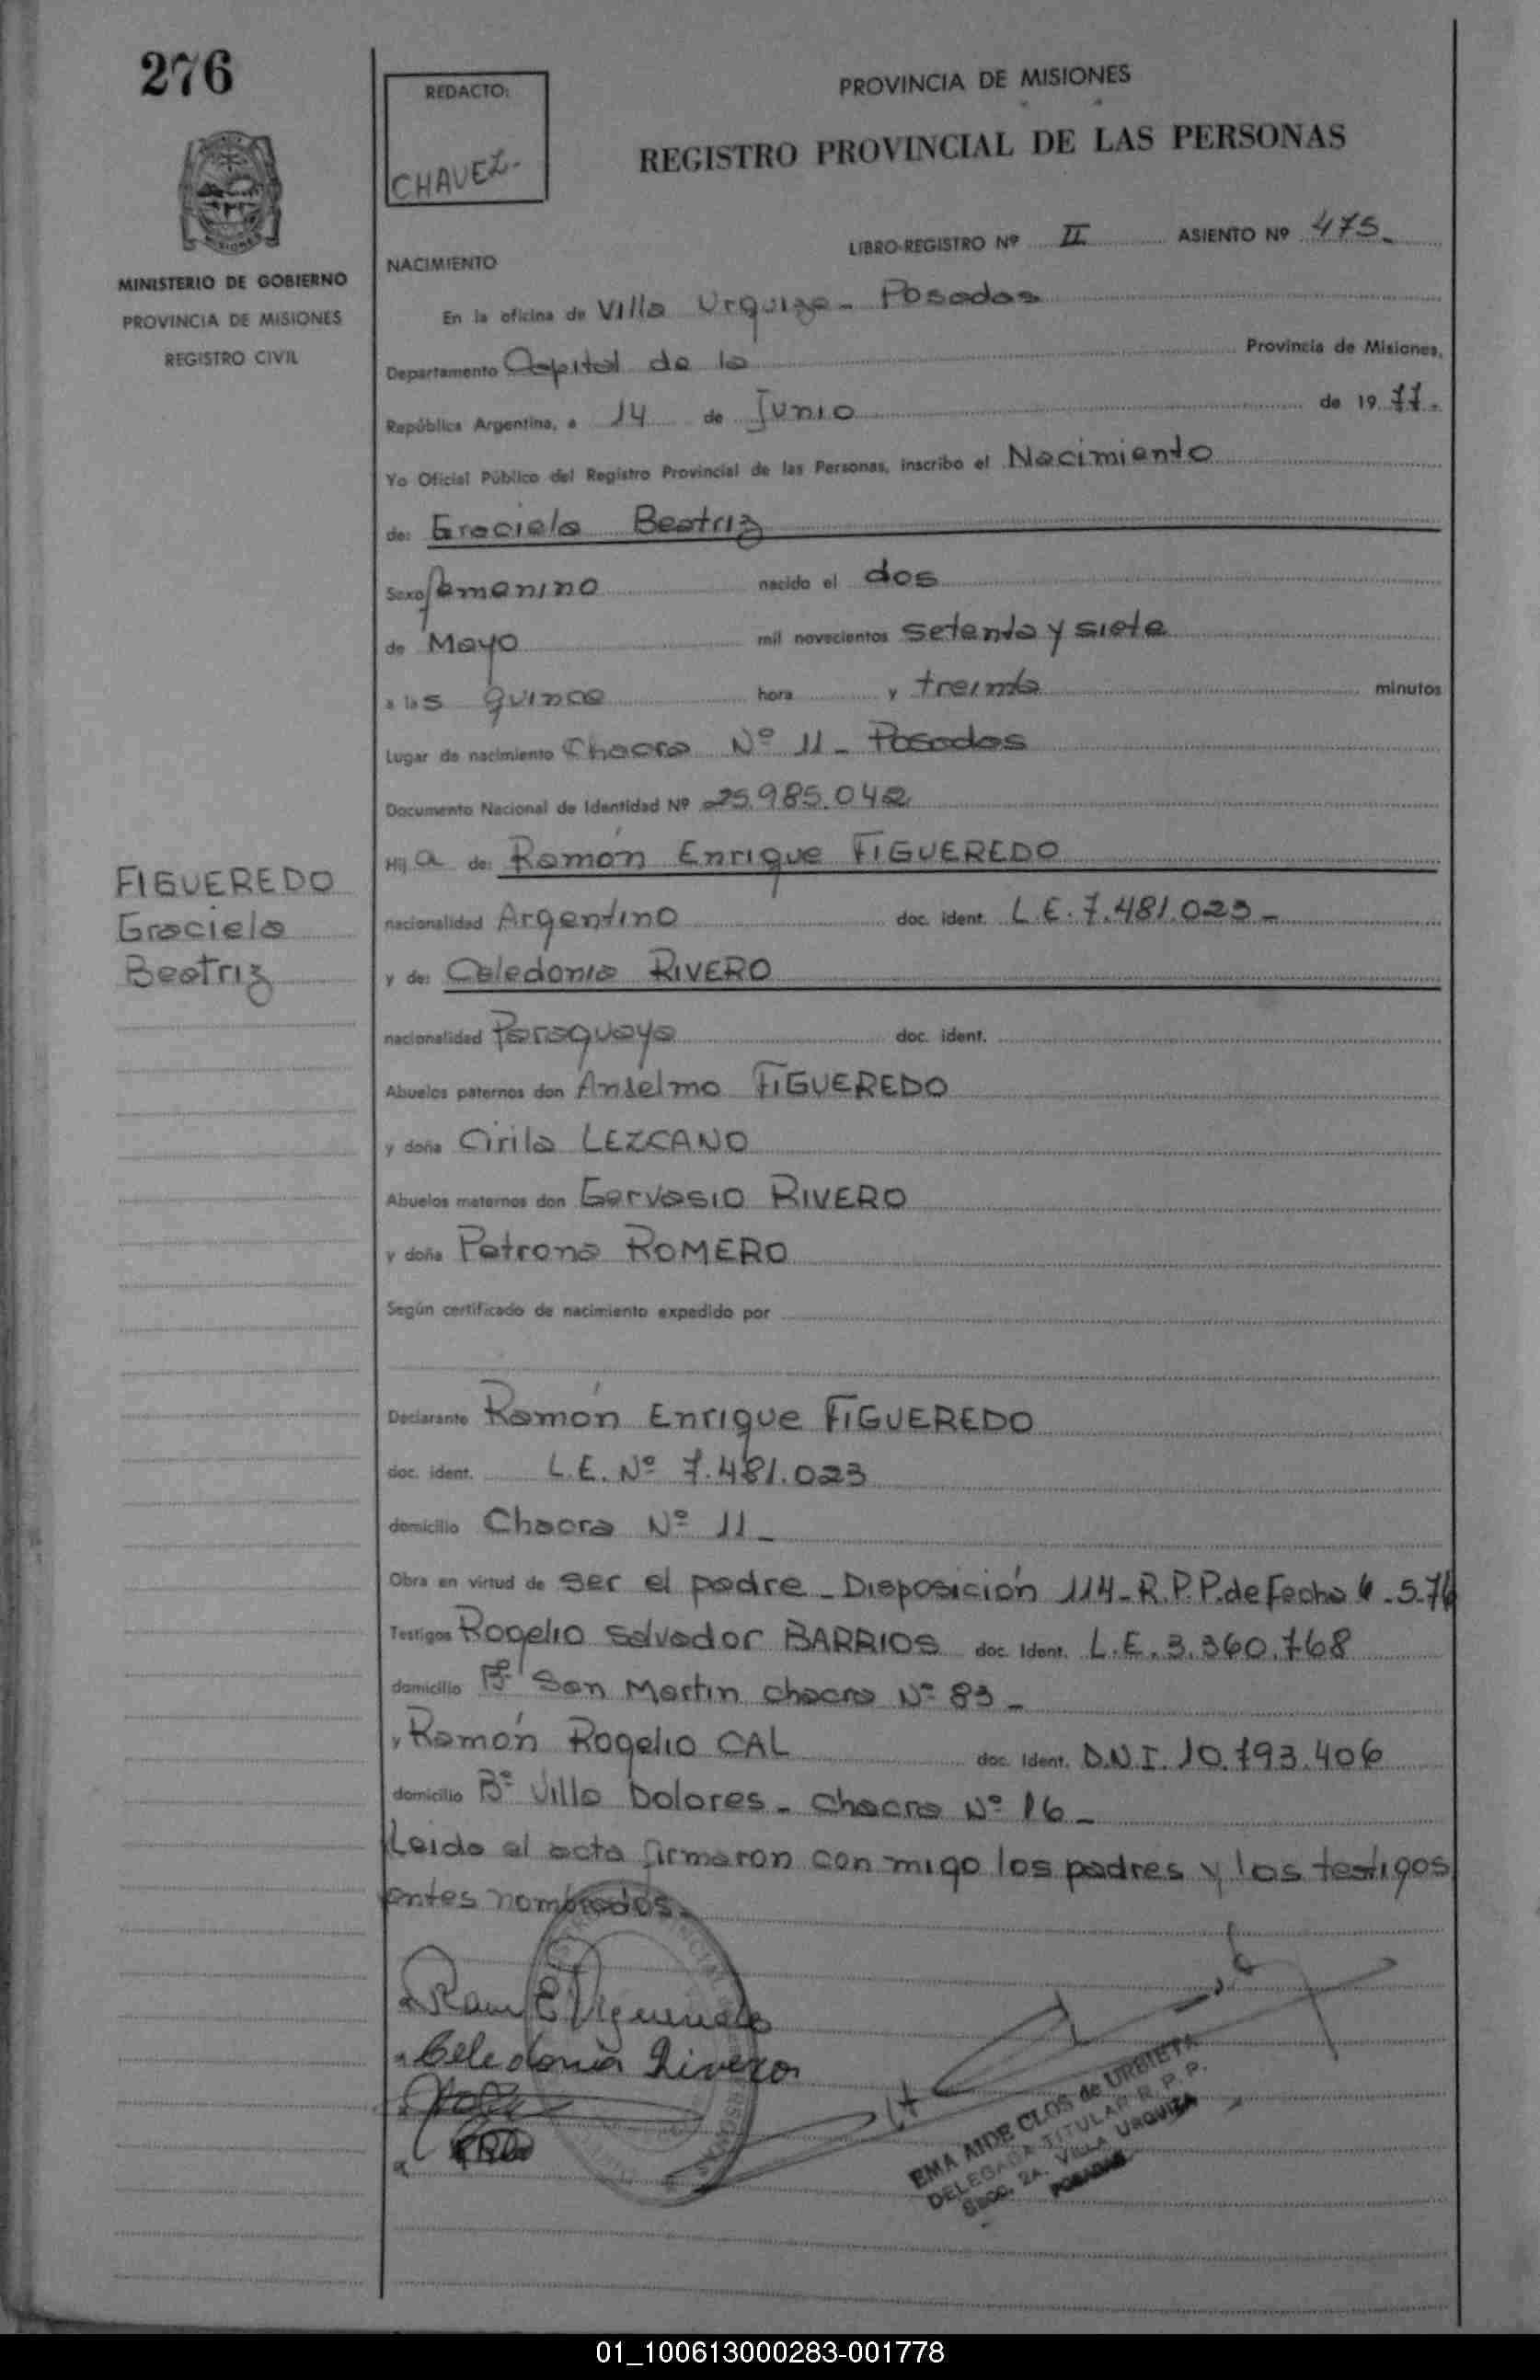 276
REDACTO:
CHAVEZ-
PROVINCIA DE MISIONES
REGISTRO PROVINCIAL DE LAS PERSONAS
MISIONES
MINISTERIO DE GOBIERNO
PROVINCIA DE MISIONES
REGISTRO CIVIL
LIBRO-REGISTRO Nº II ASIENTO Nº 475-
NACIMIENTO
En la oficina de Villa Urquiza - Posadas
Departamento Capital de la Provincia de Misiones,
República Argentina, a 14 de Junio de 1977.
Yo Oficial Público del Registro Provincial de las Personas, inscribo el Nacimiento
de: Graciela Beatriz
Sexo femenino nacido el dos
de Mayo mil novecientos setenta y siete
a las quince hora y treinta minutos
Lugar de nacimiento Chacra Nº 11 - Posadas
Documento Nacional de Identidad Nº 25.985.042
Hija de: Ramón Enrique FIGUEREDO
FIGUEREDO
Graciela
Beatriz
nacionalidad Argentino doc. ident. L.E. 7.481.023-
y de: Celedonia RIVERO
nacionalidad Paraguaya doc. ident.
Abuelos paternos don Anselmo FIGUEREDO
y doña Cirila LEZCANO
Abuelos maternos don Gervasio RIVERO
y doña Petrona ROMERO
Según certificado de nacimiento expedido por
Declarante Ramón Enrique FIGUEREDO
doc. ident. L.E. Nº 7.481.023
domicilio Chacra Nº 11-
Obra en virtud de ser el padre - Disposición 114-R.P.P. de fecha 6-5-76
Testigos Rogelio Salvador BARRIOS doc. Ident. L.E. 3.360.768
domicilio Bº San Martin chacra Nº 83-
y Ramón Rogelio CAL doc. Ident. D.N.I. 10.793.406
domicilio Bº Villa Dolores - chacra Nº 16-
Leida el acta firmaron con migo los padres y los testigos
antes nombrados.
Celedonia Rivero
EMA AIDE CLOS de URBIETA
DELEGADA TITULAR R. P. P.
Secc. 2A. VILLA URQUIZA
POSADAS
01_100613000283-001778